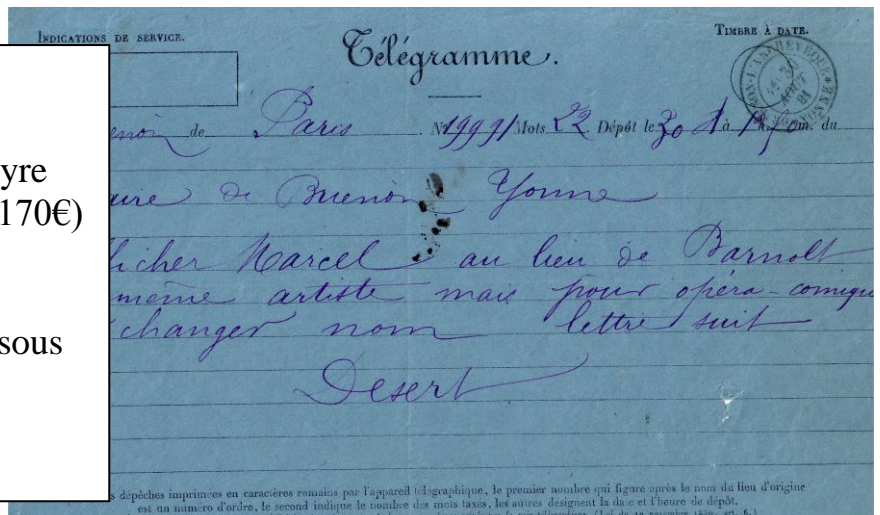 INDICATIONS DE SERVICE.
Télégramme.
TIMBRE À DATE.
de Paris N° 19991 Mots 22 Dépôt le 30 8 à m. du
yre
aire de Brienon Yonne
170€)
ficher Marcel au lieu de Barnolt
même artiste mais pour opéra-comique
changer nom lettre suit
sous
Desert
dépêches imprimées en caractères romains par l'appareil télégraphique, le premier nombre qui figure après le nom du lieu d'origine
est un numéro d'ordre, le second indique le nombre des mots taxés, les autres désignent la date et l'heure de dépôt.